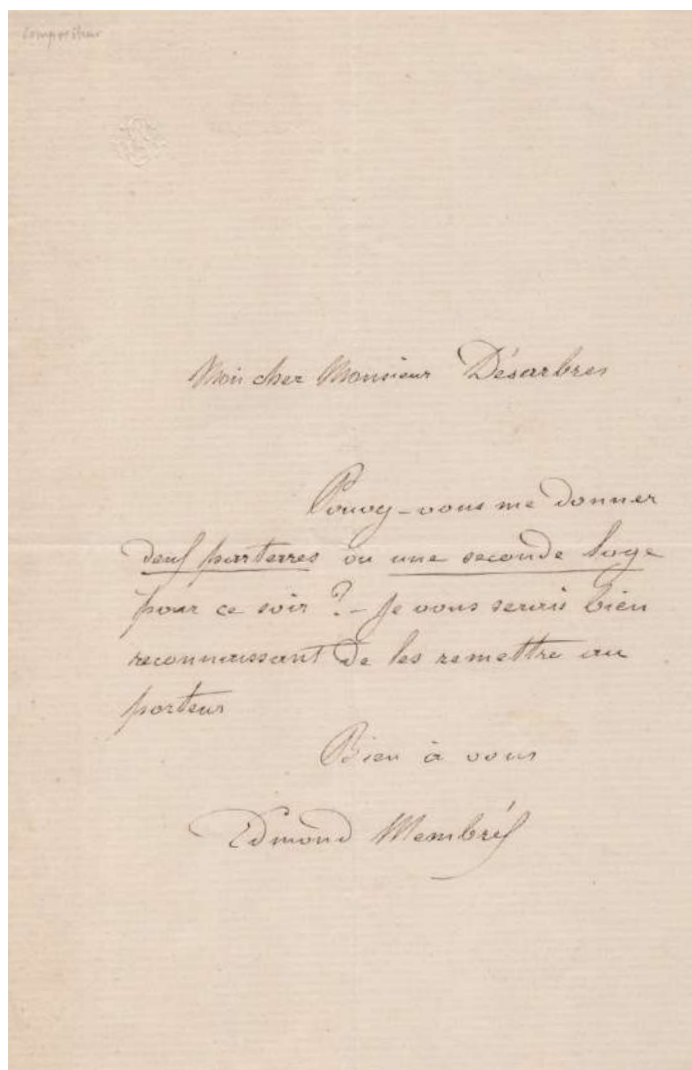 Compositeur
Mon cher Monsieur Désarbres
Pouvez-vous me donner
deux parterres ou une seconde loge
pour ce soir ? - Je vous serais bien
reconnaissant de les remettre au
porteur
Bien à vous
Edmond Membrée